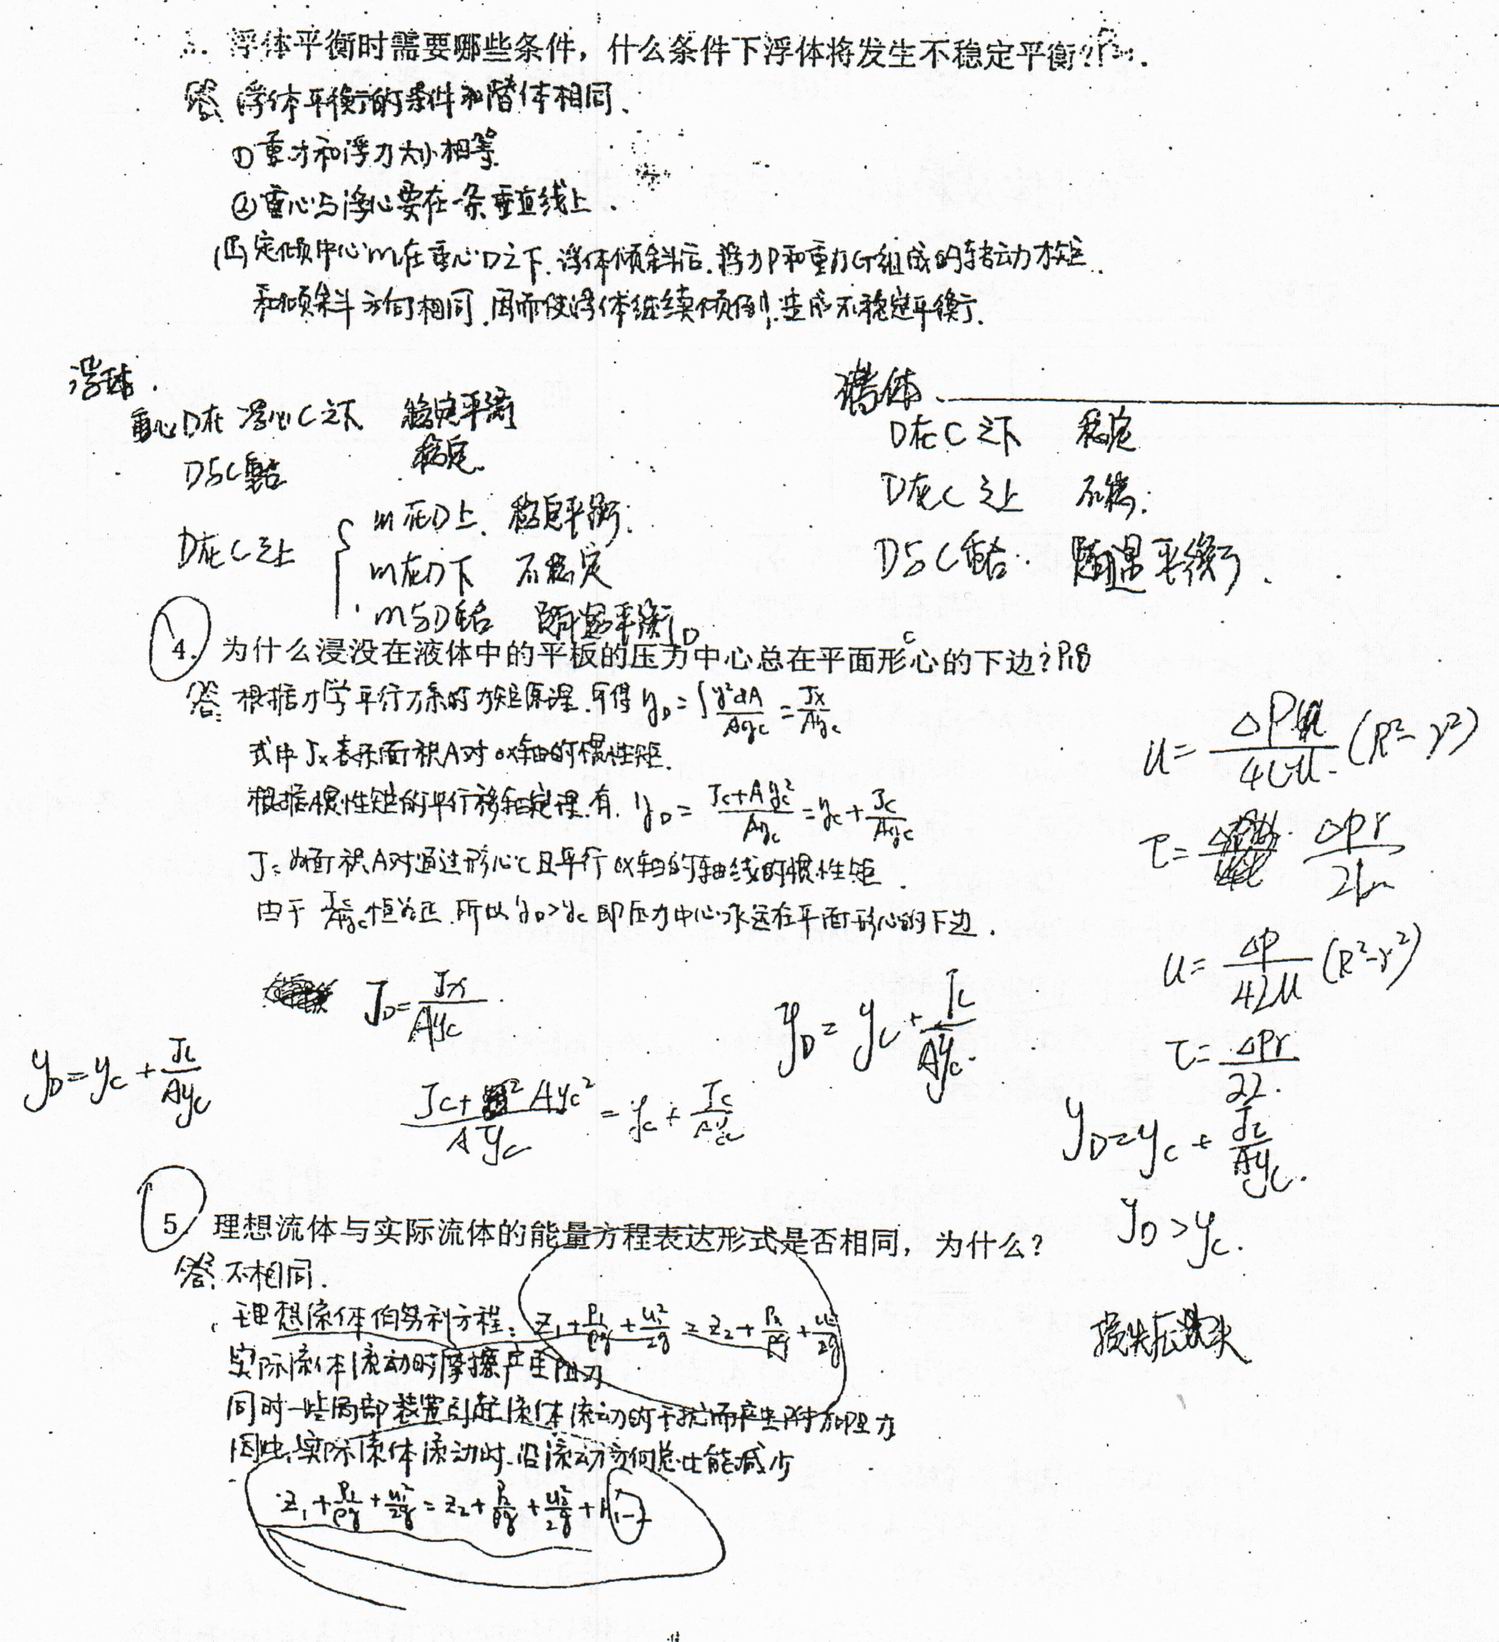 浮体平衡时需要哪些条件，什么条件下浮体将发生不稳定平衡?
答: 浮体平衡的条件和潜体相同.
①重力和浮力大小相等.
②重心与浮心要在一条垂直线上.
定倾中心m在重心D之下.浮体倾斜后.浮力P和重力G组成的转动力矩
和倾斜方向相同.因而使浮体继续倾倒,造成不稳定平衡.
浮体.
重心D在浮心C之下 稳定平衡
D与C重合 稳定.
D在C之上
m在D上. 稳定平衡.
m在D下 不稳定
m与D重合 随遇平衡
潜体.
D在C之下 稳定
D在C之上 不稳.
D与C重合. 随遇平衡.
4. 为什么浸没在液体中的平板的压力中心D总在平面形心C的下边?P18
答: 根据力学平行力系的力矩原理.可得 y_D = ∫y²dA/Ay_c = Jx/Ay_c
式中Jx表示面积A对ox轴的惯性矩.
根据惯性矩的平行移轴定理.有. y_D = (Jc+Ay_c²)/Ay_c = y_c + Jc/Ay_c
Jc 为面积A对通过形心C且平行ox轴的轴线的惯性矩.
由于 Jc/Ay_c 恒为正.所以y_D>y_c 即压力中心永远在平面形心的下边.
J_D = Jx/Ay_c
y_D = y_c + Jc/Ay_c
y_D = y_c + Jc/Ay_c.
(Jc + Ay_c²)/Ay_c = y_c + Jc/Ay_c
u = ΔP/4Lμ (R²-r²)
τ = ΔPr/2L
u = ΔP/4Lμ (R²-r²)
τ = ΔPr/2L.
y_D = y_c + Jc/Ay_c.
y_D > y_c.
5. 理想流体与实际流体的能量方程表达形式是否相同，为什么?
答: 不相同.
理想流体伯努利方程: Z₁ + P₁/ρg + u₁²/2g = Z₂ + P₂/ρg + u₂²/2g
实际流体流动时摩擦产生阻力
同时一些局部装置引起流体流动的干扰而产生附加阻力
因此,实际流体流动时.沿流动方向总比能减少
Z₁ + P₁/ρg + u₁²/2g = Z₂ + P₂/ρg + u₂²/2g + h₁₋₂